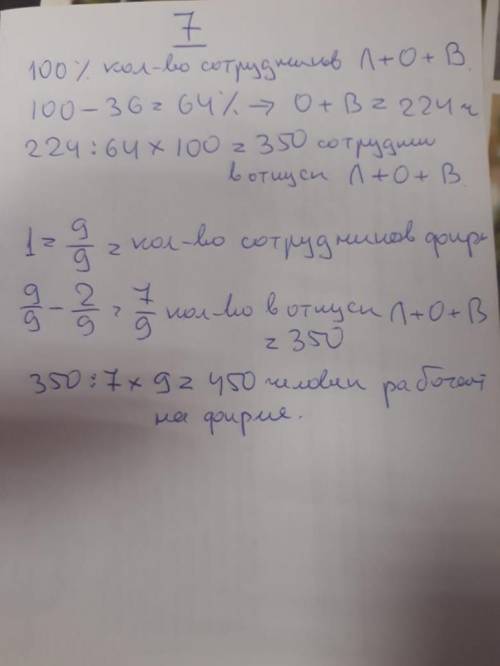 7
100% кол-во сотрудников Л+О+В
100 - 36 = 64% → О + В = 224 ч
224 : 64 × 100 = 350 сотрудни
в отпуски Л+О+В
1 = 9/9 = кол-во сотрудников фир
9/9 - 2/9 = 7/9 кол-во в отпуски Л+О+В
= 350
350 : 7 × 9 = 450 человек работает
на фирме.